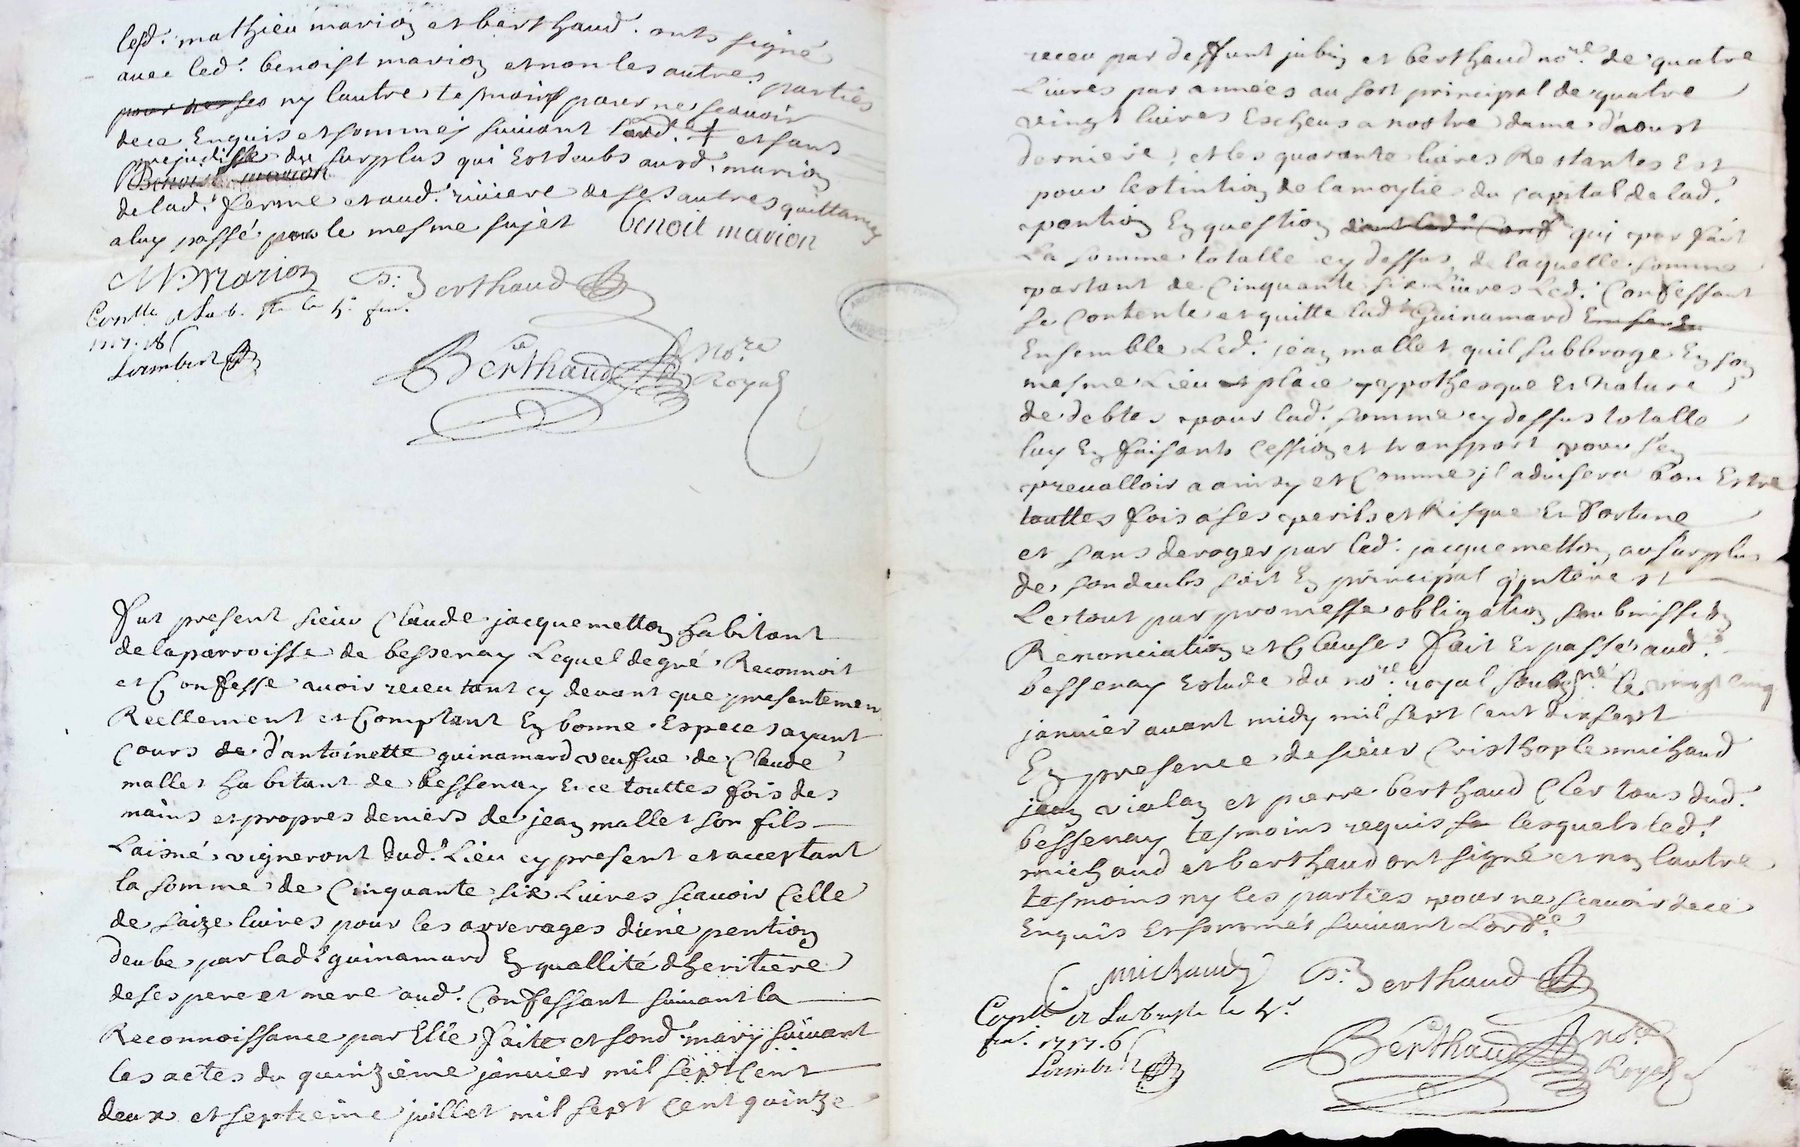 lesd. mathieu marion et berthaud. onts signé
avec led. benoist marion et non les autres parties
pour nes ses ny lautre tesmoins pour ne scavoir
de ce Enquis et sommes suivant lord. et sans
prejudisse du surplus qui Est deubs ausd. marion
Benoist marion
de lad. ferme et aud. riviere de ses autres quittances
a luy passé pour le mesme sujet benoit marion
M. Marion P. Berthaud
1717.
Lambert
Berthaud No.re Royal
Fut present sieur Claude jacquemetton habitant
de la parroisse de bessenay Lequel de gré Reconnoit
et Confesse avoir receu tant cy devant que presentement
Reellement et Comptant En bonne Espece ayant
Cours de d'antoinette guinamard veufue de Claude
mallet habitant de Bessenay Et ce touttes fois des
mains et propres deniers de jean mallet son fils
Laisné vigneront dud. Lieu cy present et acceptant
la somme de Cinquante six Livres scavoir Celle
de saize livres pour les arrerages d'une pention
deube par lad. guinamard En quallité d'heritiere
de ses pere et mere aud. Confessant suivant la
Reconnoissance par Elle faite et sond. mary suivant
les actes du quinzieme janvier mil sept Cent
deux et septieme juillet mil sept Cent quinze
receu par deffunt jubin et berthaud no.re de quatre
Livres par années au sort principal de quatre
vingt livres Escheus a nostre dame d'aoust
derniere, et les quarante livres Restantes Est
pour lestintion de la moytie du capital de lad.
pention En question dont lad. Conf qui par fait
La somme totalle cy dessus, de laquelle somme
partant de Cinquante six Livres Led. Confessant
se Contente et quitte lad. Guinamard
Ensemble Led. jean mallet quil subbroge En son
mesme Lieu et place hypothesque Et Nature
de debtes pour lad. somme cy dessus totalle
luy En faisants Cession et transport pour s'en
prevalloir a ainsy et Comme jl advisera bon Estre
touttes fois a ses perils et Risque Et fortune
et sans deroger par led. jacquemetton au surplus
de son deubs soit En principal qintérest
Le tout par promesse obligation soubmission
Renonciation et Clauses fait Et passé aud.
bessenay Estude du no.re royal soubsigné le vingt cinq
janvier avant midy mil sept cent dix sept
En presence de sieur Cristhople michaud
jean vialan et pierre berthaud Cler tous dud.
bessenay tesmoins requis se lesquels led.
michaud et berthaud ont signé et non lautre
tesmoins ny les parties pour ne scavoir de ce
Enquis Et sommés suivant Lord.ce
C. Michaud P. Berthaud
1717.
Lambert
Berthaud no.re Royal